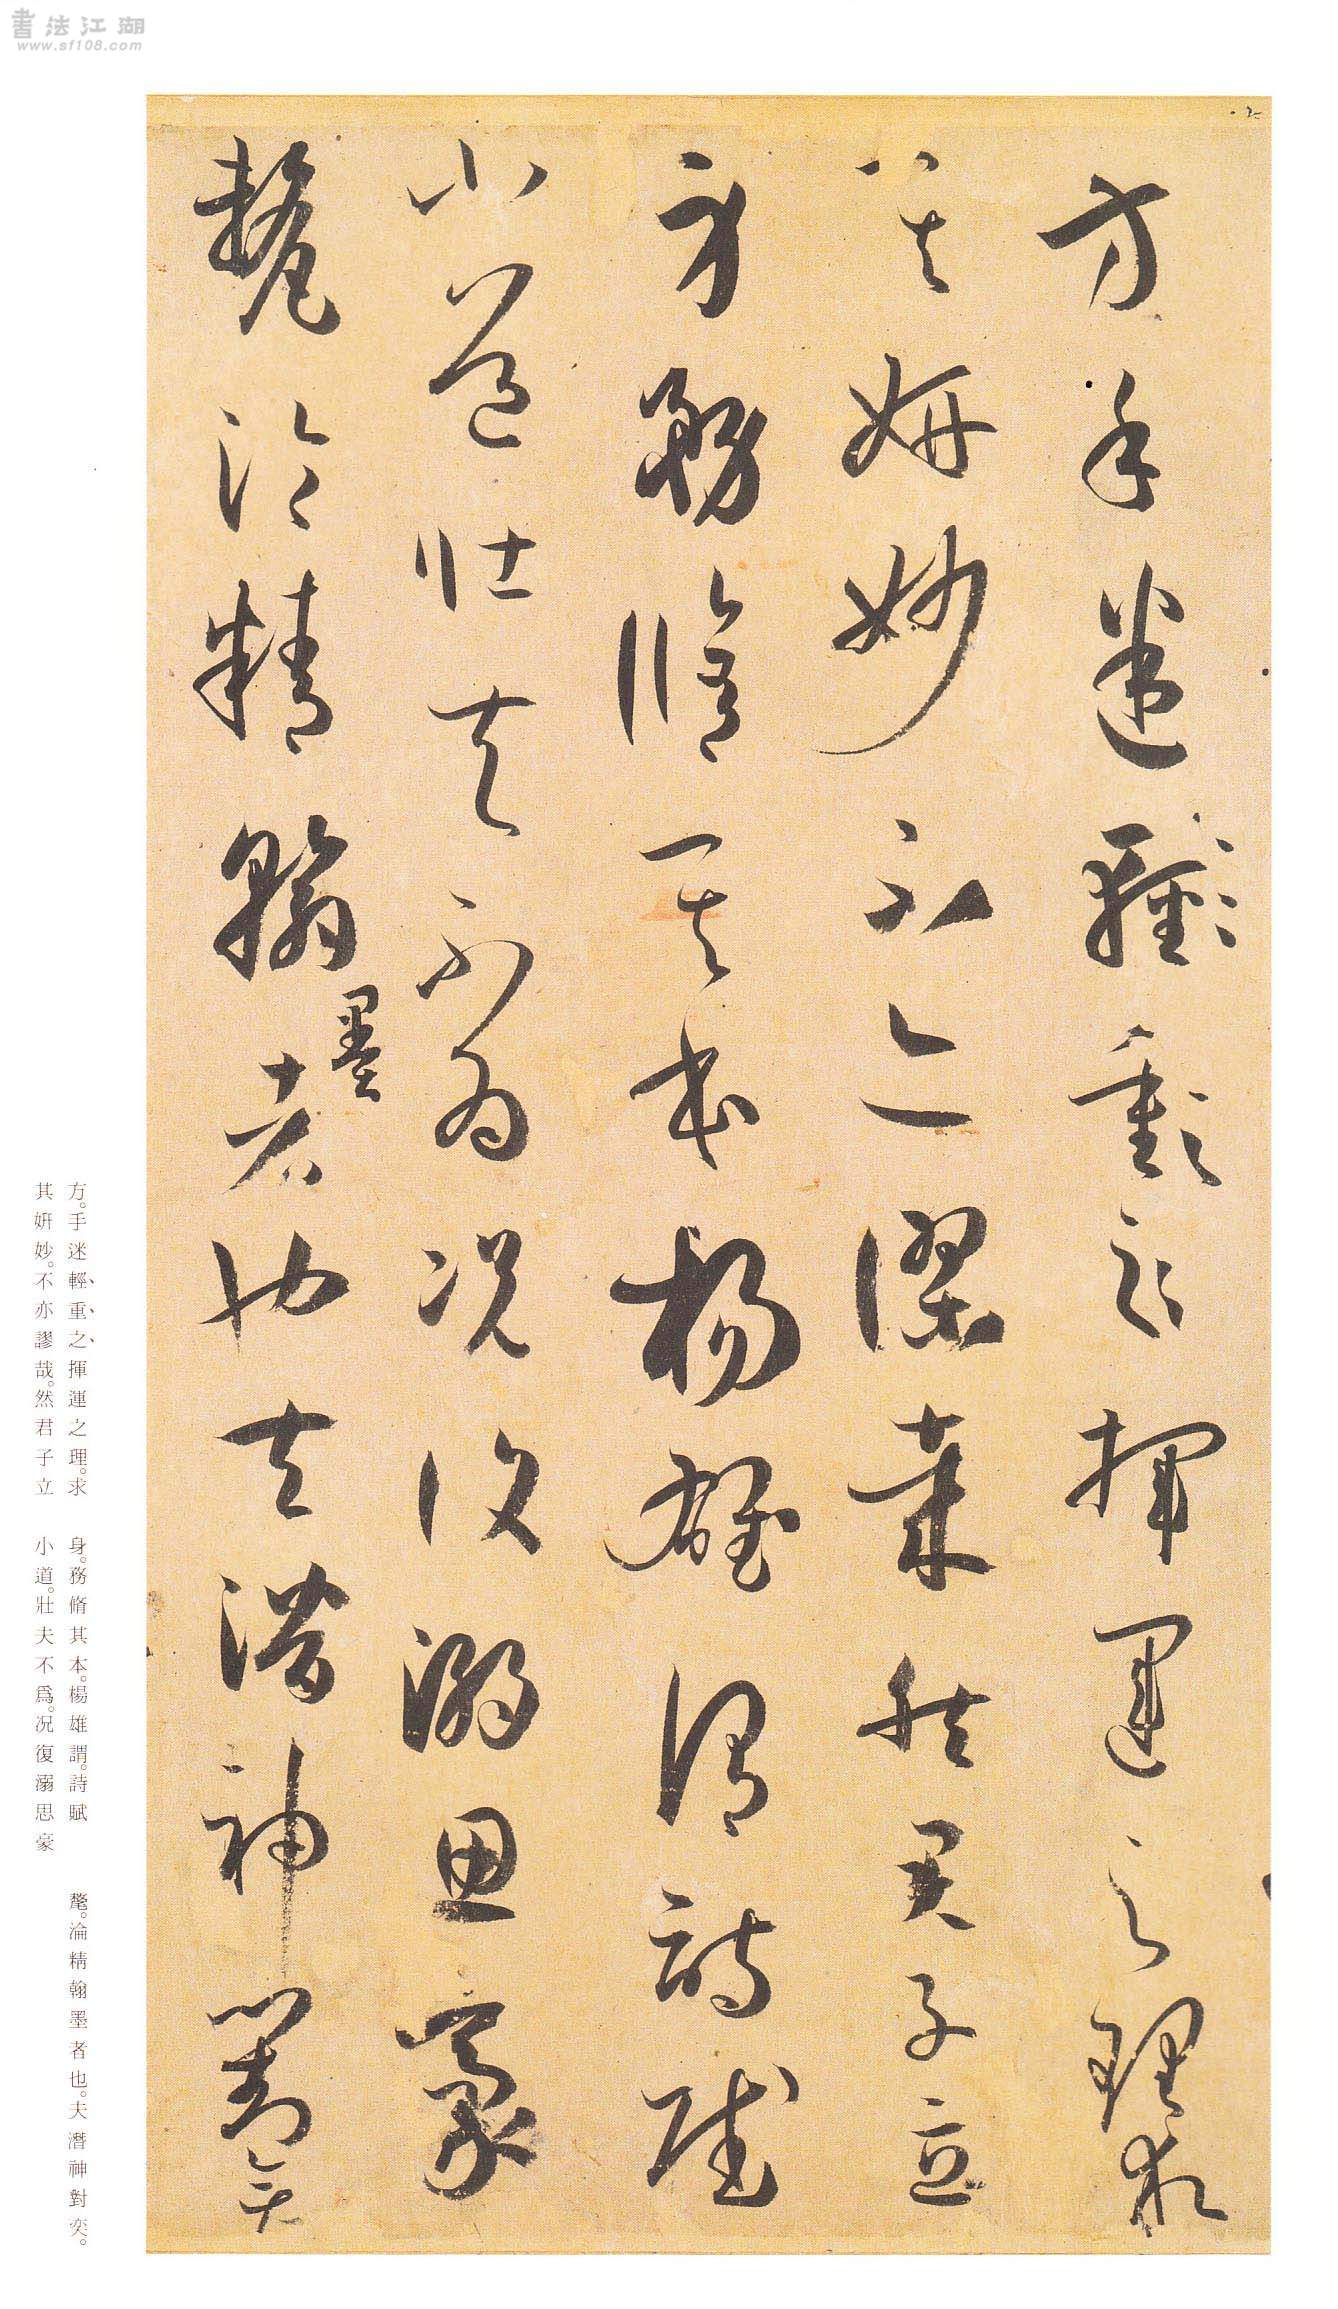 書法江湖
www.sf108.com
方手迷輕重之揮運之理求
其妍妙不亦謬哉然君子立
身務脩其本楊雄謂詩賦
小道壯夫不為況復溺思豪
氂淪精翰墨者也夫潛神對奕
方。手迷輕、重、之、揮運之理。求
其妍妙。不亦謬哉。然君子立
身。務脩其本。楊雄謂。詩賦
小道。壯夫不爲。况復溺思豪
氂。淪精翰墨者也。夫潛神對奕。